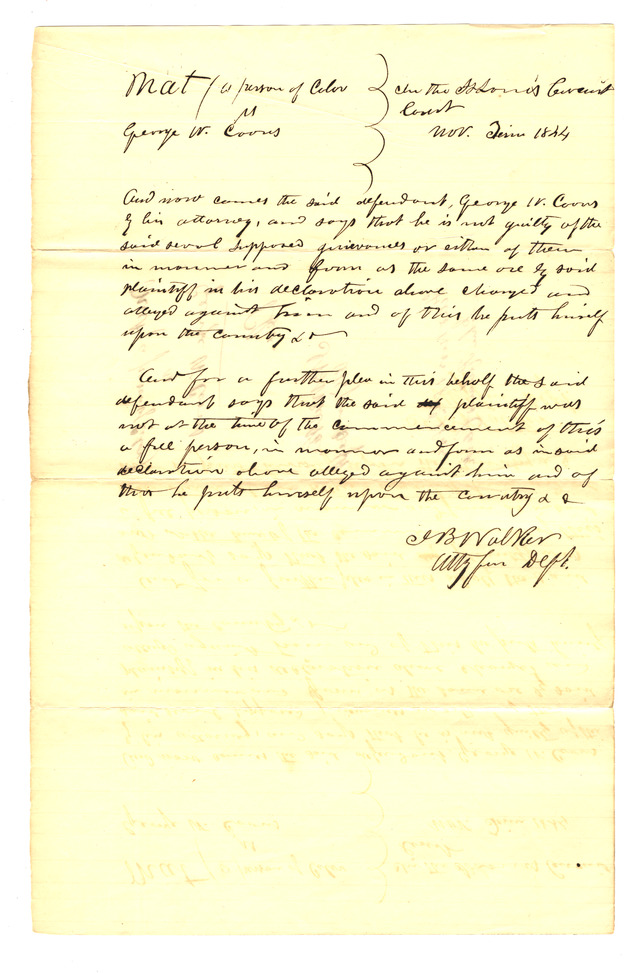 Mat / a person of Color
vs
George W. Coons
In the St Louis Circuit
Court
Nov. Term 1844
And now comes the said defendant, George W. Coons
by his attorney, and says that he is not guilty of the
said several supposed grievances or either of them
in manner and form as the same are by said
plaintiff in his declaration above charged and
alleged against him and of this he puts himself
upon the country &c
And for a further plea in this behalf the said
defendant says that the said plaintiff was
not at the time of the commencement of this
a free person, in manner and form as in said
declaration above alleged against him and of
this he puts himself upon the country & &
J B Walker
Atty for Deft.